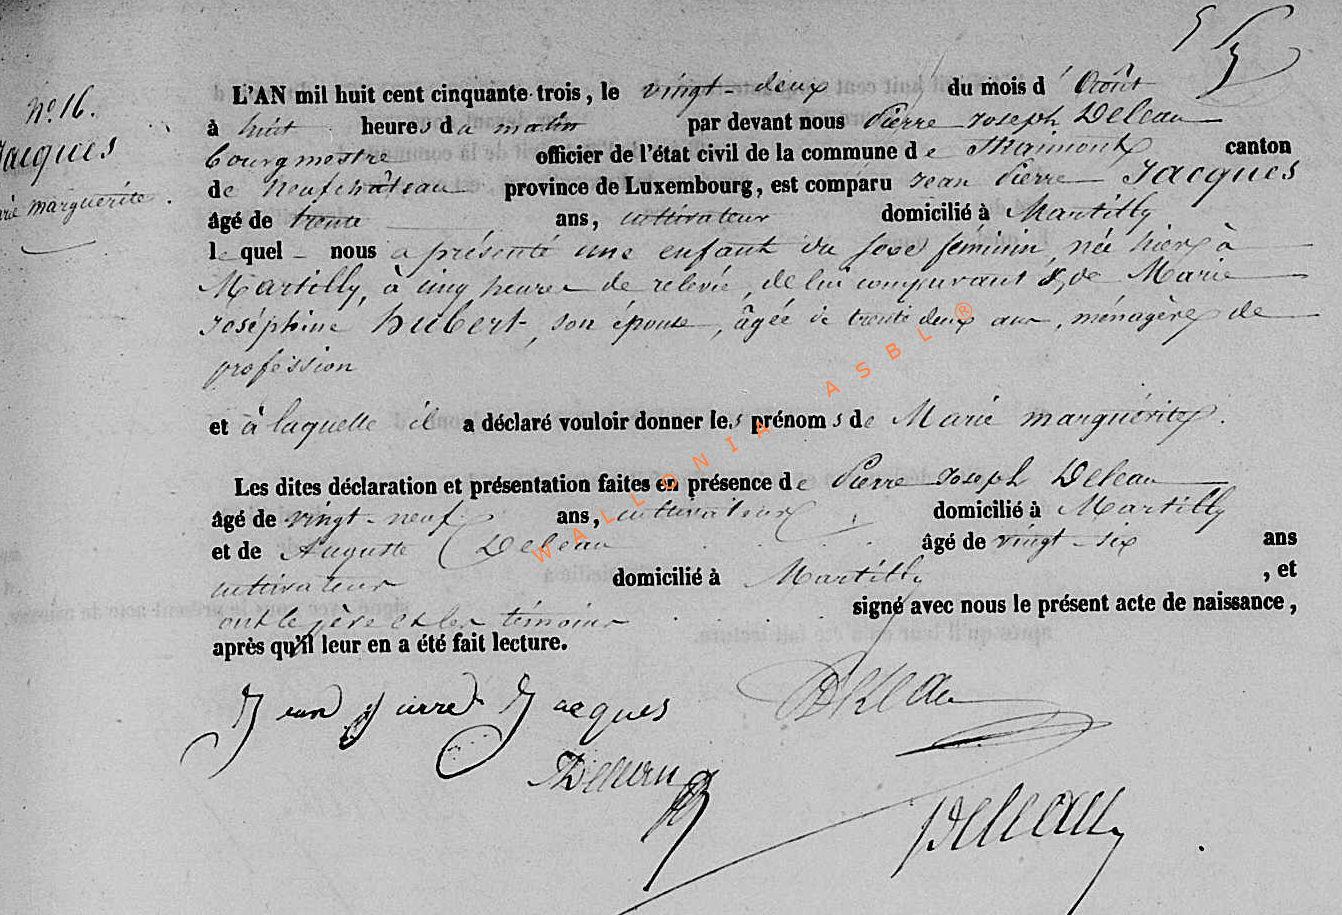 55
N.° 16.
Jacques
Marie Marguérite.
L'AN mil huit cent cinquante-trois, le vingt-deux du mois d'Août
à huit heures du matin par devant nous Pierre Joseph Deleau
bourgmestre officier de l'état civil de la commune de Straimont canton
de Neufchâteau province de Luxembourg, est comparu Jean Pierre Jacques
âgé de trente ans, cultivateur domicilié à Martilly
lequel nous a présenté une enfant du sexe féminin, née hier à
Martilly, à cinq heures de relevée, de lui comparant & de Marie
Joséphine Hubert, son épouse, âgée de trente deux ans, ménagère de
profession
et à laquelle il a déclaré vouloir donner les prénoms de Marie Marguérite.
Les dites déclaration et présentation faites en présence de Pierre Joseph Deleau
âgé de vingt-neuf ans, cultivateur domicilié à Martilly
et de Auguste Deleau âgé de vingt-six ans
cultivateur domicilié à Martilly, et
ont le père et les témoins signé avec nous le présent acte de naissance,
après qu'il leur en a été fait lecture.
Jean pierre Jacques
Deleau
Deleau
Deleau
WALLONIA ASBL ®